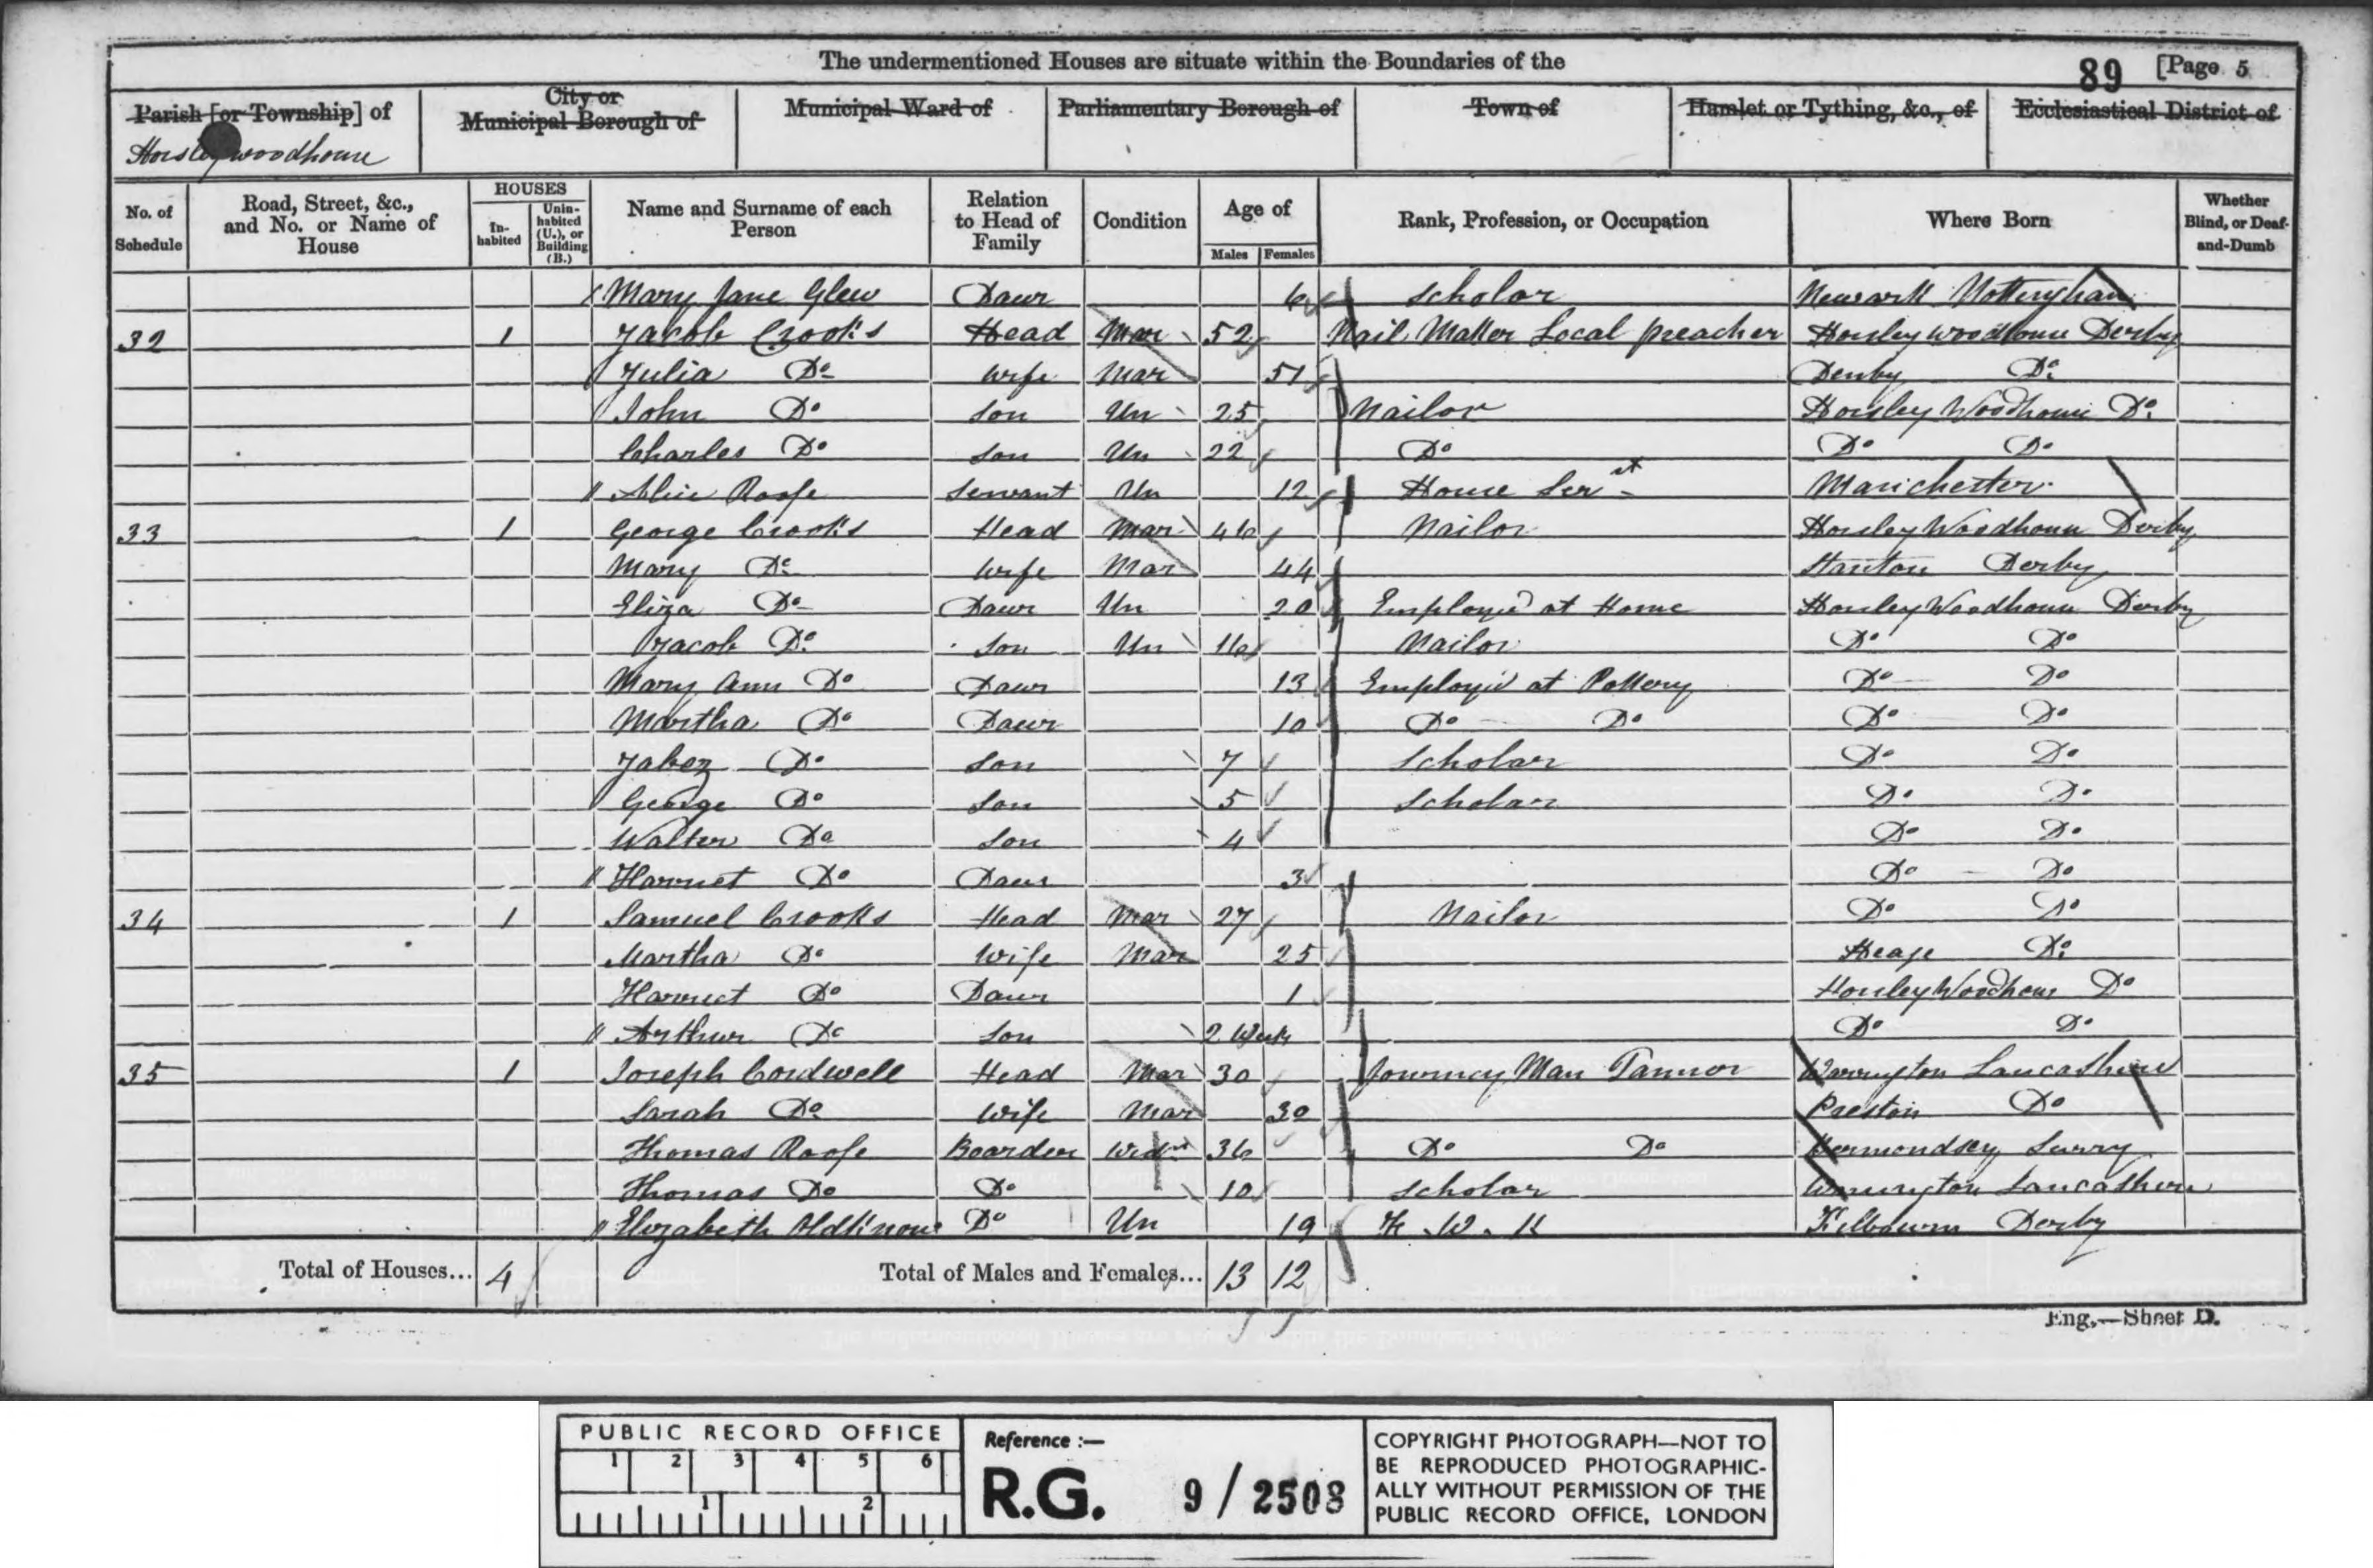 The undermentioned Houses are situate within the Boundaries of the
89 [Page 5
Parish [or Township] of
City or Municipal Borough of
Municipal Ward of
Parliamentary Borough of
Town of
Hamlet or Tything, &c., of
Ecclesiastical District of
Horsley woodhouse
No. of Schedule
Road, Street, &c., and No. or Name of House
HOUSES
In-habited
Unin-habited (U.), or Building (B.)
Name and Surname of each Person
Relation to Head of Family
Condition
Age of
Males
Females
Rank, Profession, or Occupation
Where Born
Whether Blind, or Deaf-and-Dumb
Mary Jane Glew Daur 6 Scholar Newark Nottingham
32 1 Jacob Crooks Head Mar 52 Nail Maker Local preacher Horsley woodhouse Derby
Julia Do Wife Mar 51 Denby Do
John Do Son Un 25 Nailor Horsley Woodhouse Do
Charles Do Son Un 22 Do Do Do
Alice Roofe Servant Un 12 House Servt Manchester
33 1 George Crooks Head Mar 46 Nailor Horsley Woodhouse Derby
Mary Do Wife Mar 44 Stanton Derby
Eliza Do Daur Un 20 Employed at Home Horsley Woodhouse Derby
Jacob Do Son Un 16 Nailor Do Do
Mary Ann Do Daur 13 Employed at Pottery Do Do
Martha Do Daur 10 Do Do Do Do
Jabez Do Son 7 Scholar Do Do
George Do Son 5 Scholar Do Do
Walter Do Son 4 Do Do
Harriet Do Daur 3 Do Do
34 1 Samuel Crooks Head Mar 27 Nailor Do Do
Martha Do Wife Mar 25 Heage Do
Harriet Do Daur 1 Horsley Woodhouse Do
Arthur Do Son 2 Weeks Do Do
35 1 Joseph Cordwell Head Mar 30 Journey Man Tannor Warrington Lancashire
Sarah Do Wife Mar 30 Preston Do
Thomas Roofe Boarder Widr 36 Do Do Bermondsey Surry
Thomas Do Do 10 Scholar Warrington Lancashire
Elizabeth Oldknow Do Un 19 F. W. K Kilbourn Derby
Total of Houses... 4
Total of Males and Females... 13 12
Eng.—Sheet D.
PUBLIC RECORD OFFICE
1 2 3 4 5 6
1 2
Reference :—
R.G. 9/2508
COPYRIGHT PHOTOGRAPH—NOT TO
BE REPRODUCED PHOTOGRAPHIC-
ALLY WITHOUT PERMISSION OF THE
PUBLIC RECORD OFFICE, LONDON